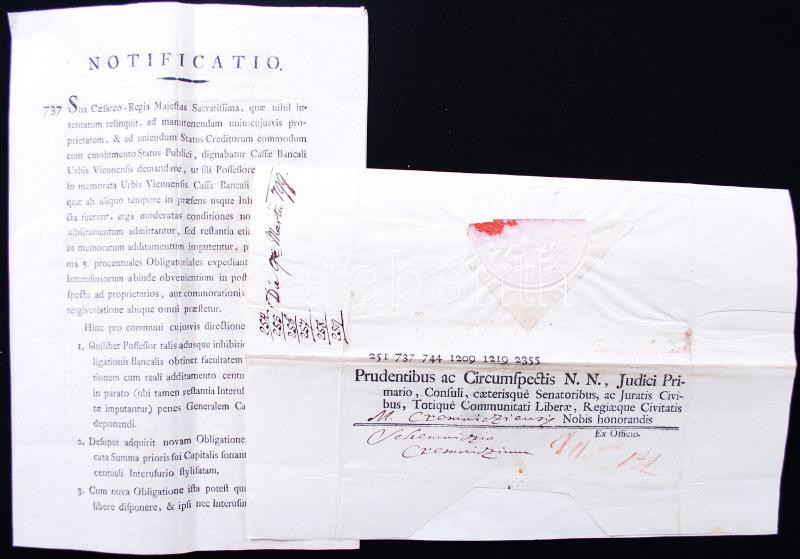 NOTIFICATIO.
737 Sua Cæsareo-Regia Majestas Sacratissima, quæ nihil in-
tentatum relinquit, ad manutenendam uniuscujusvis pro-
prietatem, & ad uniendum Status Creditorum commodum
cum emolumento Status Publici, dignabatur Cassæ Bancali
Urbis Viennensis demandare, ut illi Possessore
in memorata Urbis Viennensis Cassa Bancali
quæ ab aliquo tempore in præsens usque Inh
cta fuerunt, erga moderatas conditiones no
additamentum admittantur, sed restantia etia
in memoratum additamentum imputentur, p
ma 5. procentuales Obligatoriales expediant
Interusuriorum abinde obvenientium in post
spectu ad proprietarios, aut commorationis
tergiversatione absque omni præstetur.
Hinc pro communi cujusvis directione
1. Quilibet Possessor talis adusque inhibitio
ligationis Bancalis obtinet facultatem
tionem cum reali additamento centu
in parato (ubi tamen restantia Interus
te imputantur) penes Generalem Ca
deponendi.
2. Desuper adquirit novam Obligatione
cata Summa prioris sui Capitalis sonant
centuali Interusurio stylisatam.
3. Cum nova Obligatione ista potest qu
libere disponere, & ipsi nec Interusur
Die 9a Martii 799.
254.
255
256
257
258
259.
251 737 744 1209 1219 2355
Prudentibus ac Circumspectis N. N., Judici Pri-
mario, Consuli, cæterisquè Senatoribus, ac Juratis Civi-
bus, Totiquè Communitati Liberæ, Regiæque Civitatis
M. Cremnicziensis Nobis honorandis
Ex Officio.
Schemniczio
Cremniczium